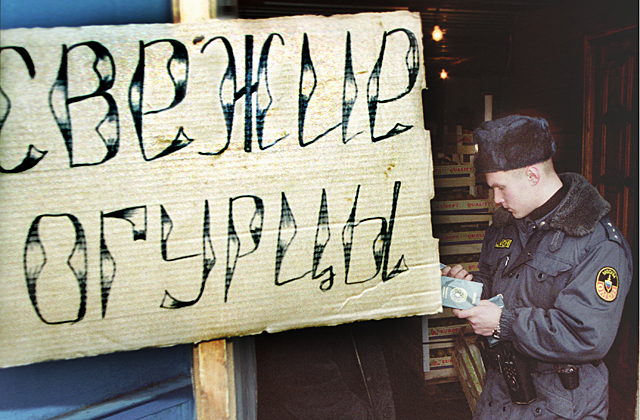 свежие
огурцы